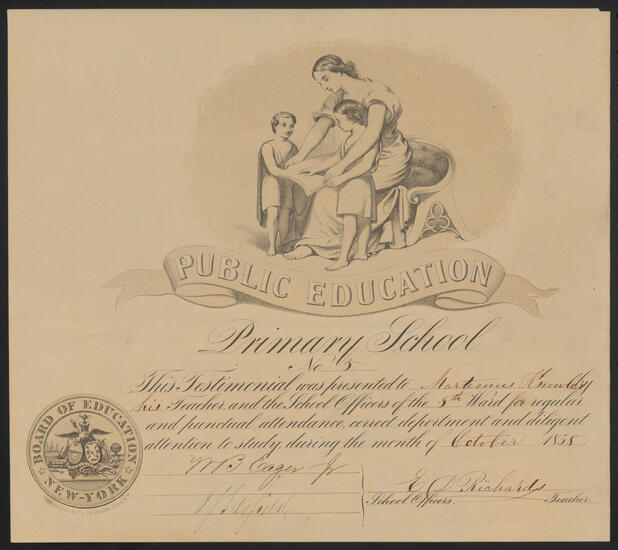 PUBLIC EDUCATION
Primary School
No 5
This Testimonial was presented to Martemus by
his Teacher and the School Officers of the 5th Ward for regular
and punctual attendance, correct deportment and diligent
attention to study, during the month of October 1858
BOARD OF EDUCATION
NEW-YORK
W B Eager Jr
E D Richards
School Officers. Teacher